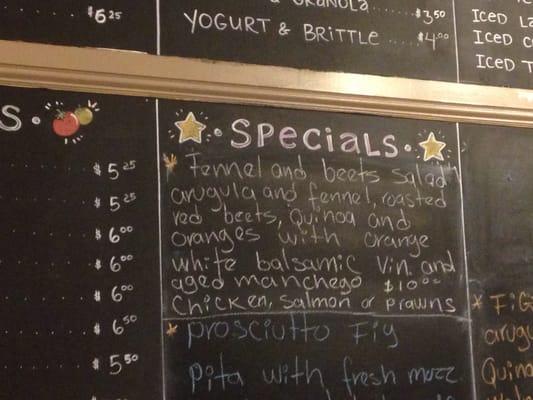 & GRANOLA ..... $3⁵⁰
YOGURT & BRITTLE ..... $4⁰⁰
$6²⁵
ICED
ICED
ICED T
S
$5²⁵
$5²⁵
$6⁰⁰
$6⁰⁰
$6⁰⁰
$6⁵⁰
$5⁵⁰
SPECIALS
* Fennel and beets Salad
arugula and fennel, roasted
red beets, Quinoa and
oranges with orange
white balsamic Vin. and
aged manchego $10⁰⁰
Chicken, Salmon or prawns
* prosciutto Fig
pita with fresh mozz.
* FIG
arugu
Quino